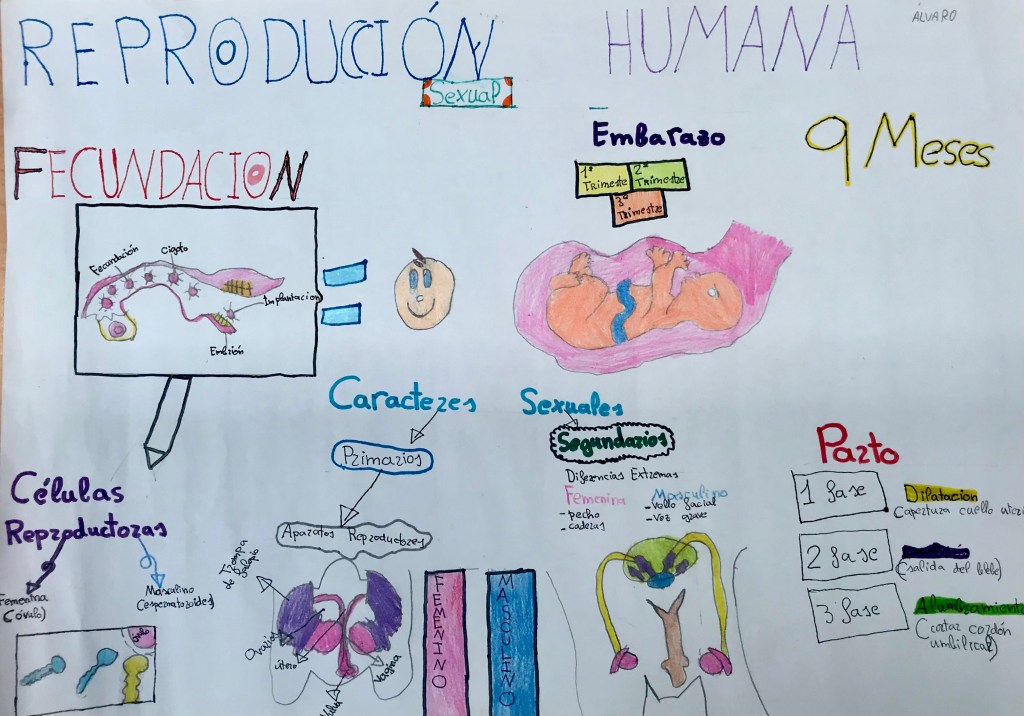 REPRODUCCIÓN HUMANA
ÁLVARO
Sexual
FECUNDACION
Fecundación
cigoto
Implantacion
Embrión
Embarazo
1º Trimestre
2º Trimestre
3º Trimestre
9 Meses
Caracteres Sexuales
Primarios
Aparatos Reproductores
Trompa de falopio
Ovarios
útero
Vulva
Vagina
FEMENINO
MASCULINO
Segundarios
Diferencias Extremas
Femenina
- pecho
- caderas
Masculino
- Vello facial
- Voz grave
Células
Reproductoras
Femenina
(óvulo)
Masculino
(espermatozoides)
óvulo
Parto
1 fase
Dilatacion
(apertura cuello
2 fase
(salida del bebe)
3 fase
Alumbramiento
(cortar cordón
umbilical)